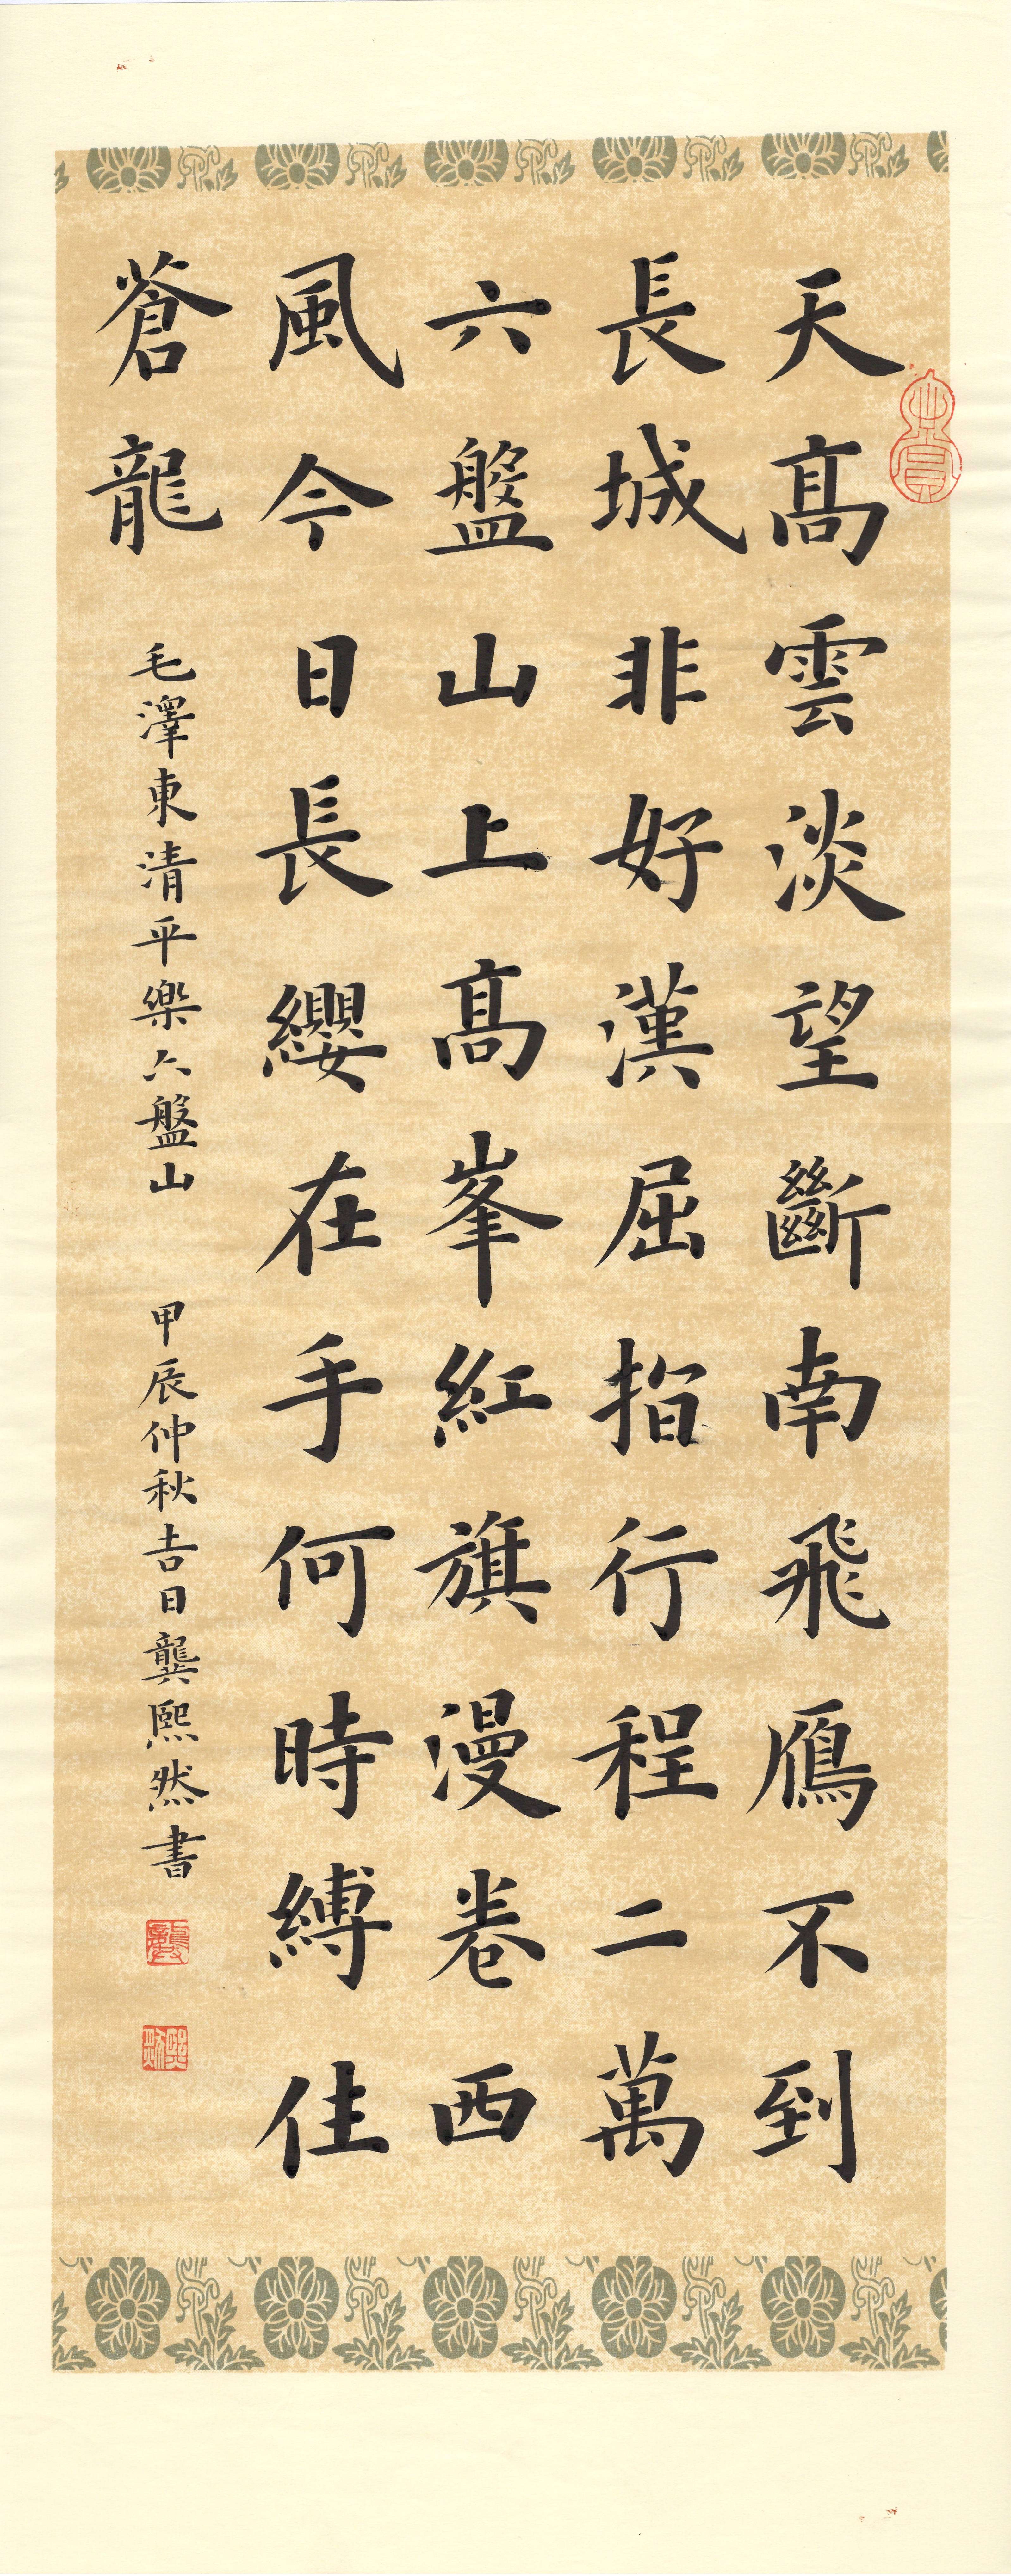 天高雲淡望斷南飛鴈不到
長城非好漢屈指行程二萬
六盤山上高峯紅旗漫卷西
風今日長纓在手何時縛住
蒼龍
毛澤東清平樂六盤山
甲辰仲秋吉日龔熙然書